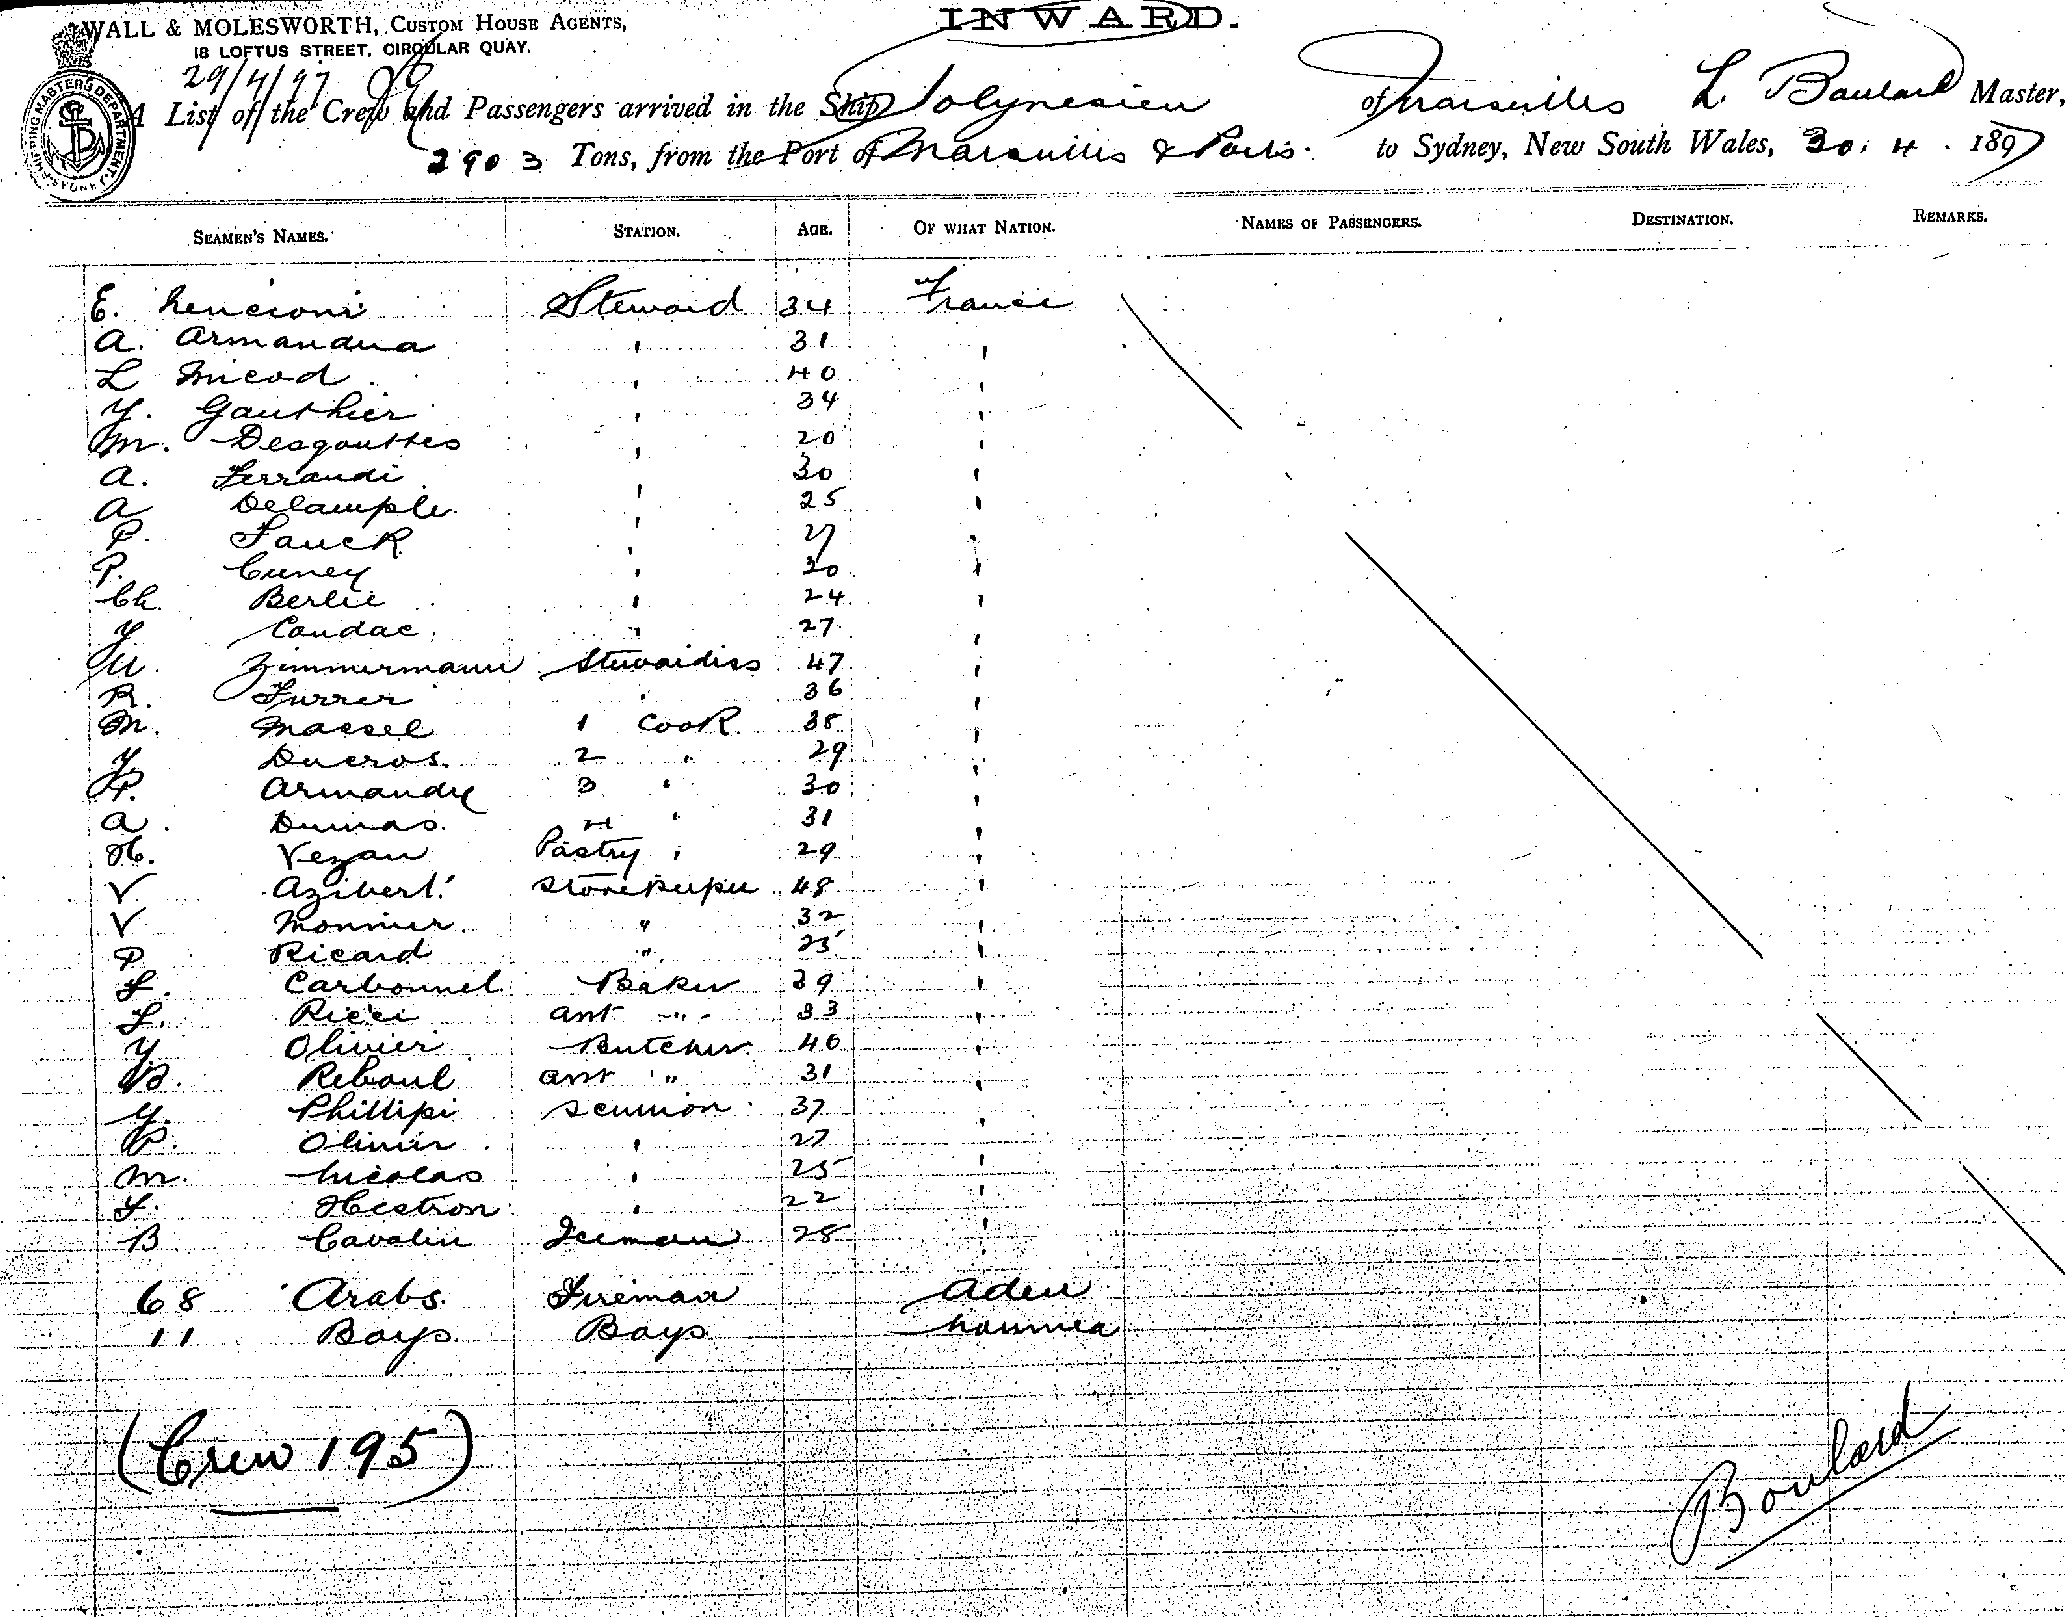 INWARD.
WALL & MOLESWORTH, CUSTOM HOUSE AGENTS,
18 LOFTUS STREET, CIRCULAR QUAY.
29/4/97
SHIPPING MASTERS DEPARTMENT SYDNEY
A List of the Crew and Passengers arrived in the Ship Polynesien of Marseilles L. Boulard Master,
2903 Tons, from the Port of Marseilles & Ports. to Sydney, New South Wales, 30. 4. 1897
SEAMEN'S NAMES. STATION. AGE. OF WHAT NATION. NAMES OF PASSENGERS. DESTINATION. REMARKS.
E. Steward 34 France
A. 31
L Micod 40
Y. Gauthier 34
M. Desgouttes 20
A. Ferrandi 30
A Delample 25
P. Fauck 27
P. Cuney 30
Ch. Berlie 24
Y Coudac 27
Zimmermann Stewardess 47
R. Furrer 36
M. Massel 1 Cook 38
Y. Ducros 2 " 29
P. Armandy 3 " 30
A. Dumas 4 " 31
H. Vezau Pastry " 29
V Azibert Storekeeper 48
V Monnier " 32
P Ricard " 25
L. Carbonnel Baker 39
F. Ricci Asst " 33
Y. Olivier Butcher 40
B. Reboul Asst " 31
Y. Phillipi 37
P. Olivier 27
M. Nicolas 25
F. Hestron 22
B Cavalin 28
68 Arabs. Fireman Aden
11 Boys. Boys Noumea
(Crew 195)
Boulard